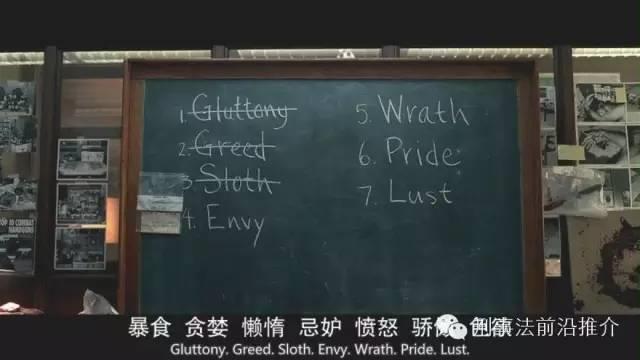 1. Gluttony
2. Greed
3. Sloth
4. Envy
5. Wrath
6. Pride
7. Lust
TOP 10 COMBAT
HANDGUNS
暴食 贪婪 懒惰 忌妒 愤怒
法前沿推介
Gluttony. Greed. Sloth. Envy. Wrath. Pride. Lust.